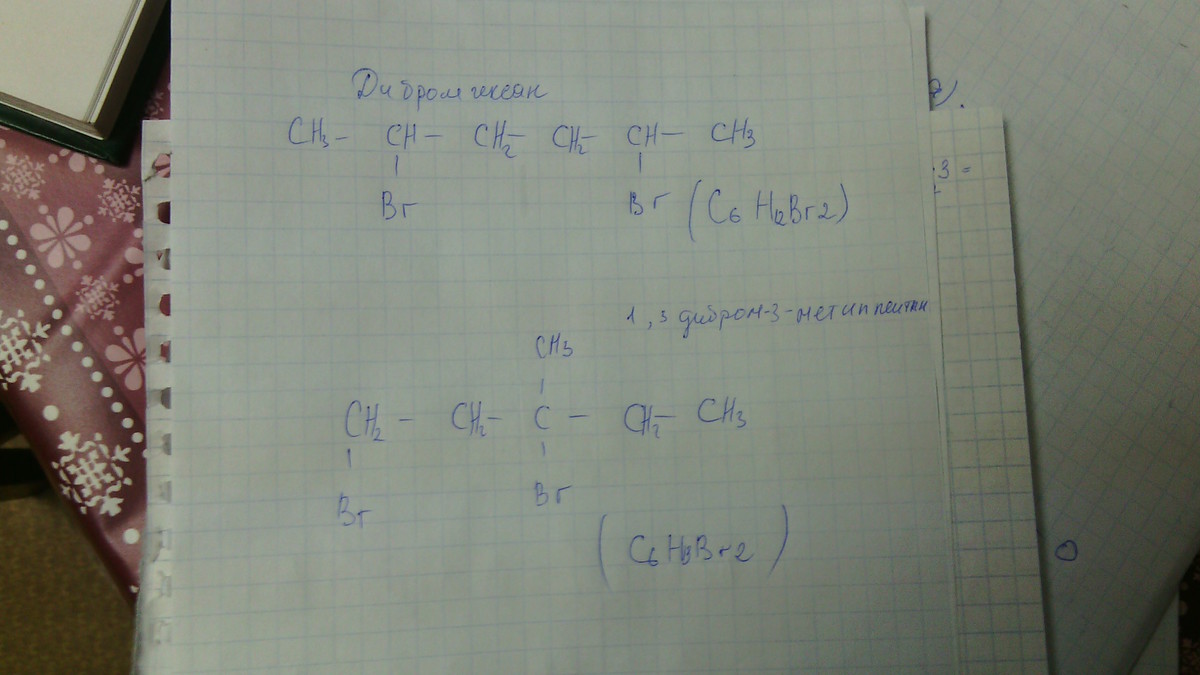 Дибромгексан
CH3 – CH – CH2 – CH2 – CH – CH3
Br Br (C6 H12Br2)
1, 3 дибром-3-метилпентан
CH3
CH2 – CH2 – C – CH2 – CH3
Br Br
(C6 H13Br2)
3 =